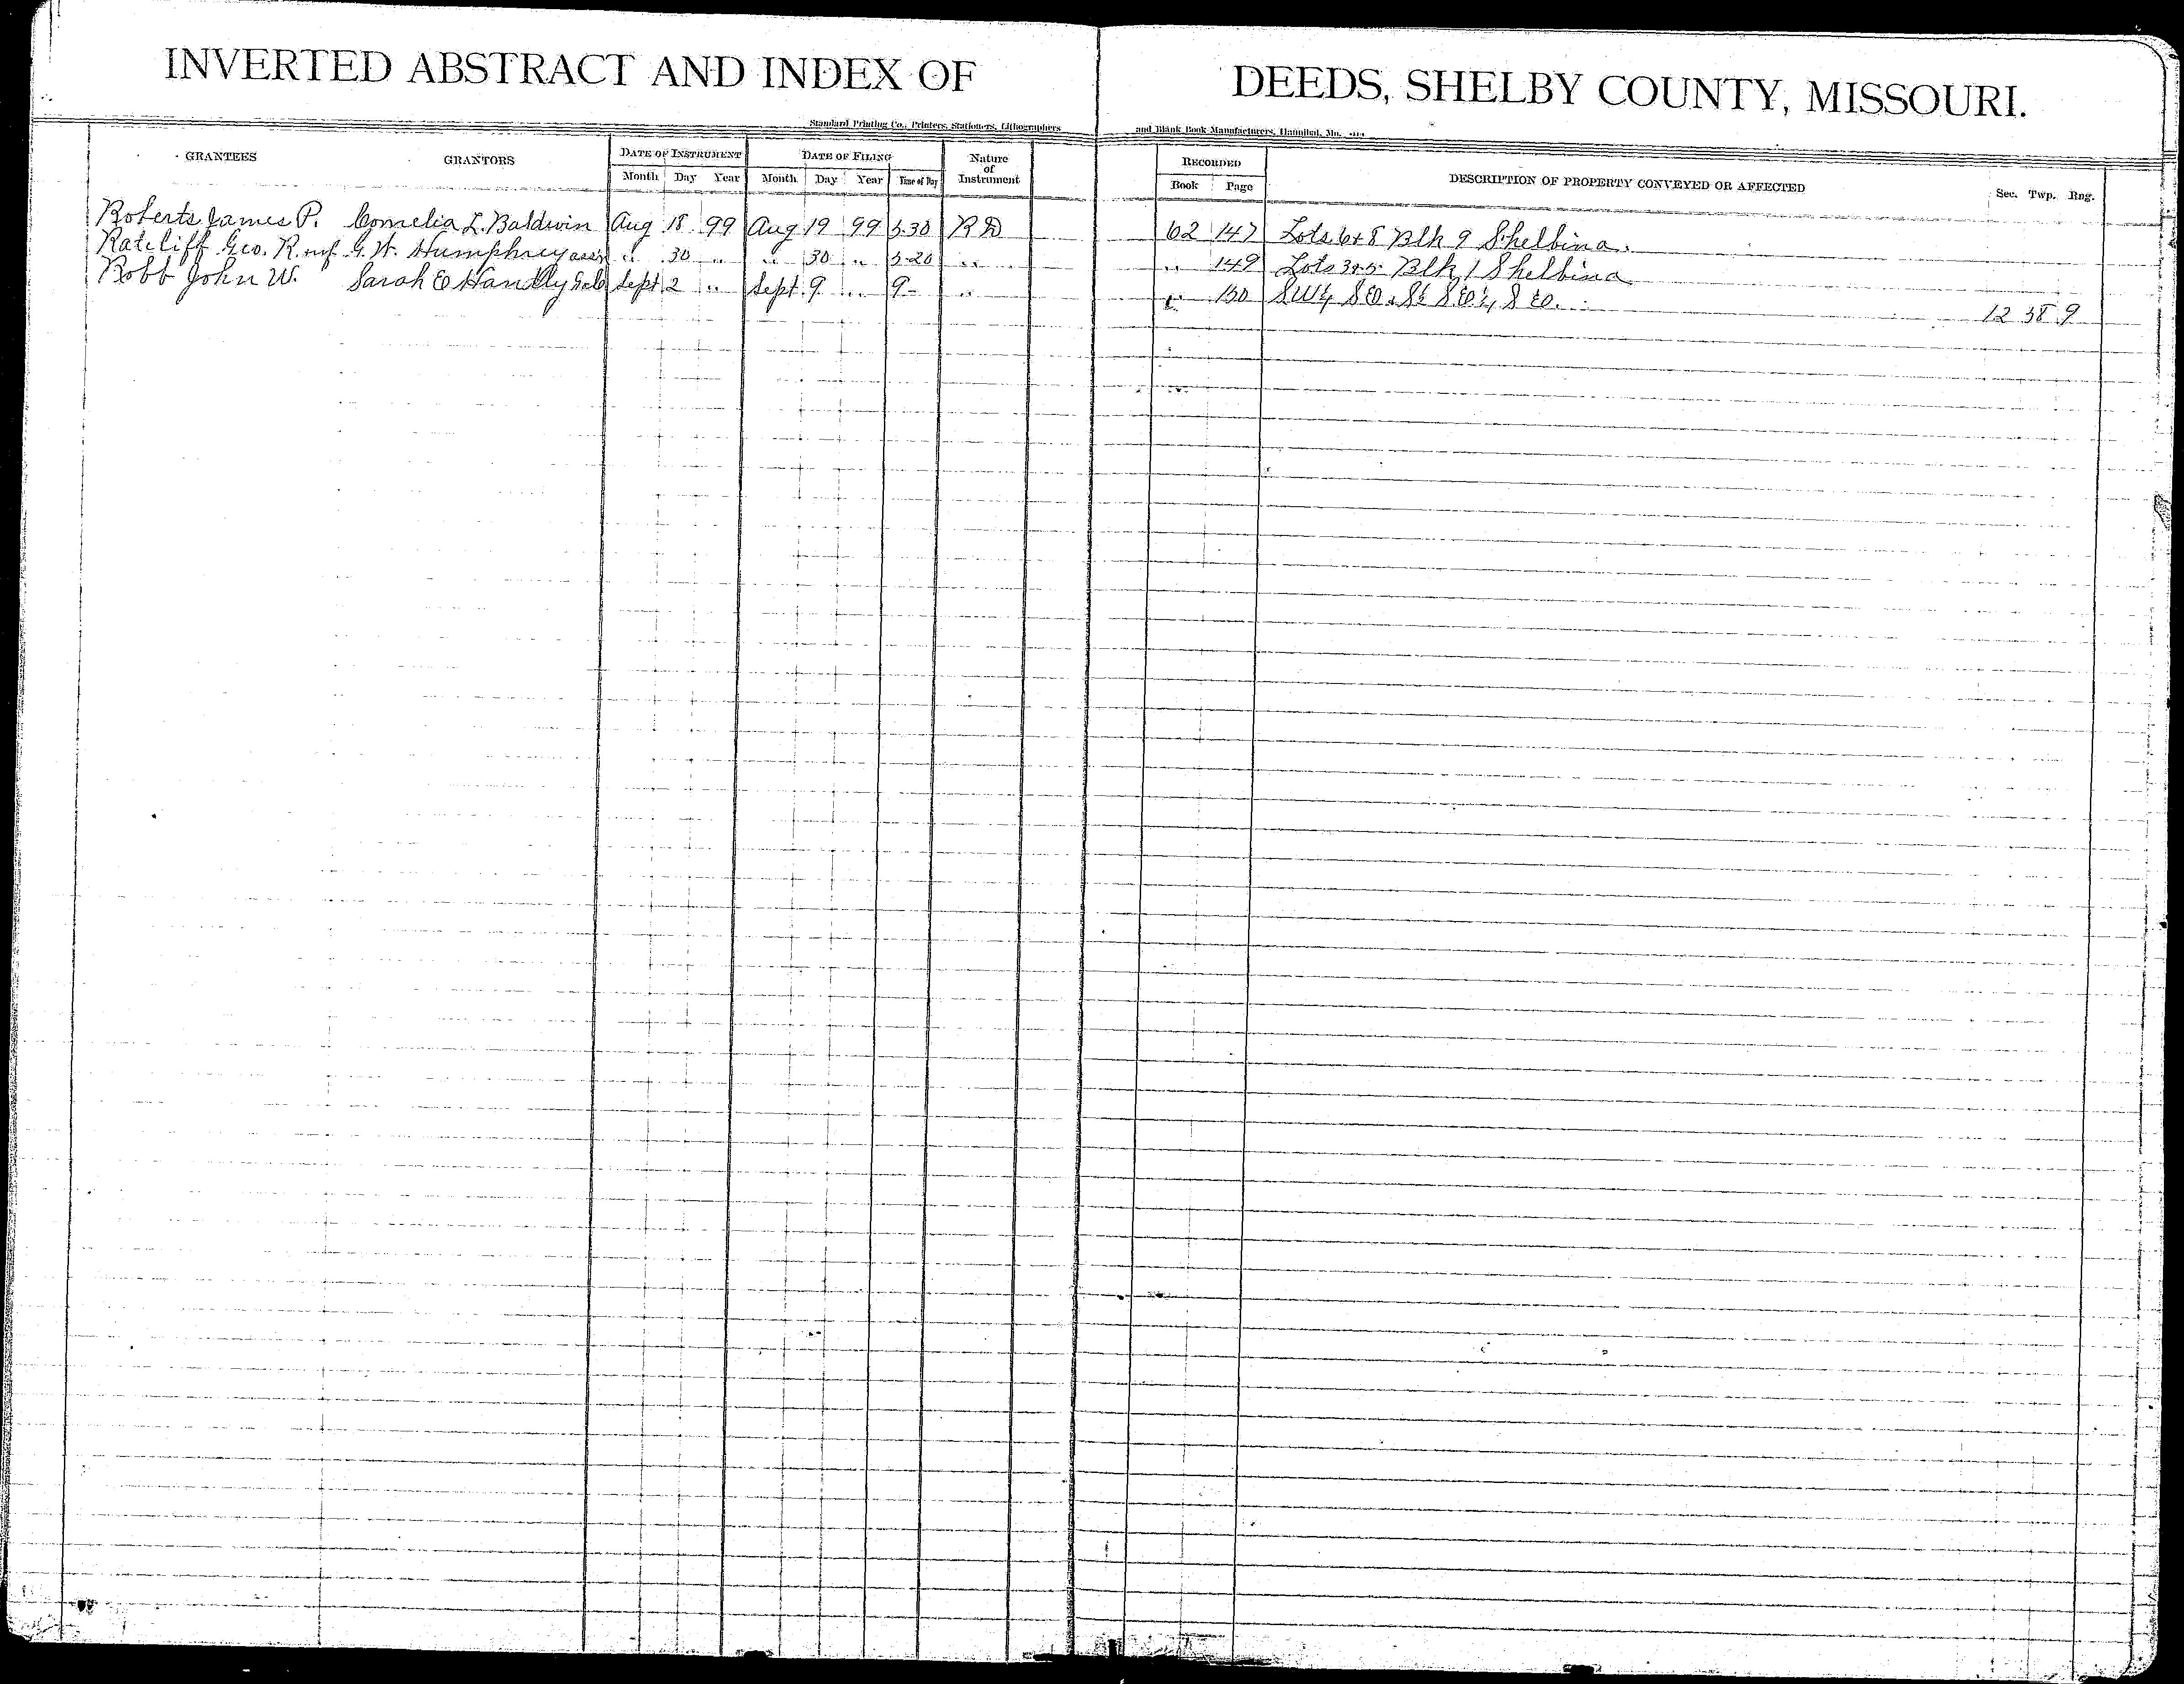 INVERTED ABSTRACT AND INDEX OF DEEDS, SHELBY COUNTY, MISSOURI.
Standard Printing Co., Printers, Stationers, Lithographers and Blank Book Manufacturers, Hannibal, Mo.
GRANTEES GRANTORS DATE OF INSTRUMENT DATE OF FILING Nature of Instrument RECORDED DESCRIPTION OF PROPERTY CONVEYED OR AFFECTED Sec. Twp. Rng.
Month Day Year Month Day Year Time of Day Book Page
Roberts James P. Cornelia L. Baldwin Aug 18 99 Aug 19 99 5.30 R D 62 147 Lots 6 & 8 Blk 9 Shelbina.
Ratcliff Geo. R. G. W. Humphrey " 30 " " 30 " 3-20 " " 149 Lots 3 & 5 Blk 1 Shelbina
Robb John W. Sarah E Handly Sept 2 " Sept 9 " 9- " " 150 SW¼ SE 12 38 9